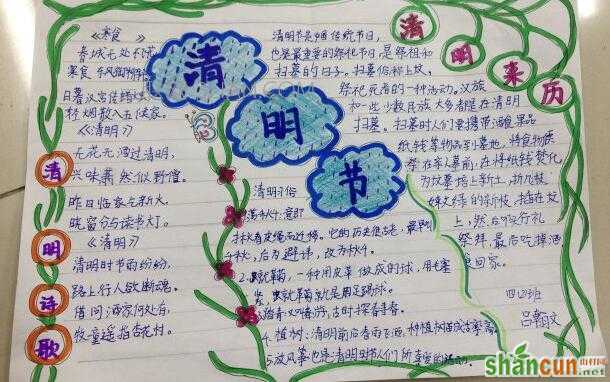 《寒食》
春城无处不飞
寒食东风御柳斜
日暮汉宫传蜡烛
轻烟散入五侯家。
《清明》
无花无酒过清明,
兴味萧然似野僧。
昨日临家乞新火
晓窗分与读书灯。
《清明》
清明时节雨纷纷,
路上行人欲断魂。
借问酒家何处有,
牧童遥指杏花村。
清
明
诗
歌
清
明
节
清
明
来
历
清明节是 传统节日,
也是最重要的祭祀节日,是祭祖和
扫墓的日子。扫墓俗称上坟,
祭祀死者的一种活动。汉族
和一些少数民族大多都是在清明
扫墓。扫墓时人们要携带酒食果品
纸钱等物品到墓地,将食物
祭在亲人墓前,在将纸钱焚化
为坟墓培上新土,折几枝
嫩绿的新枝,插在坟
上,然后 行礼
祭拜,最后吃掉酒
回家。
四(2)班
吕翱汶
清明习俗
1. 荡秋千:意即
它的历史很古老,最早
千秋,后为避讳,改为秋千
2. 蹴鞠,一种用皮革做成的球,用
紧,蹴鞠就是用足踢球。
春游,古时探春寻春。
4. 植树:清明前后春雨飞洒,种植树苗成
5. 放风筝也是清明时节人们所喜爱的活动。
shancun
山村网
.net